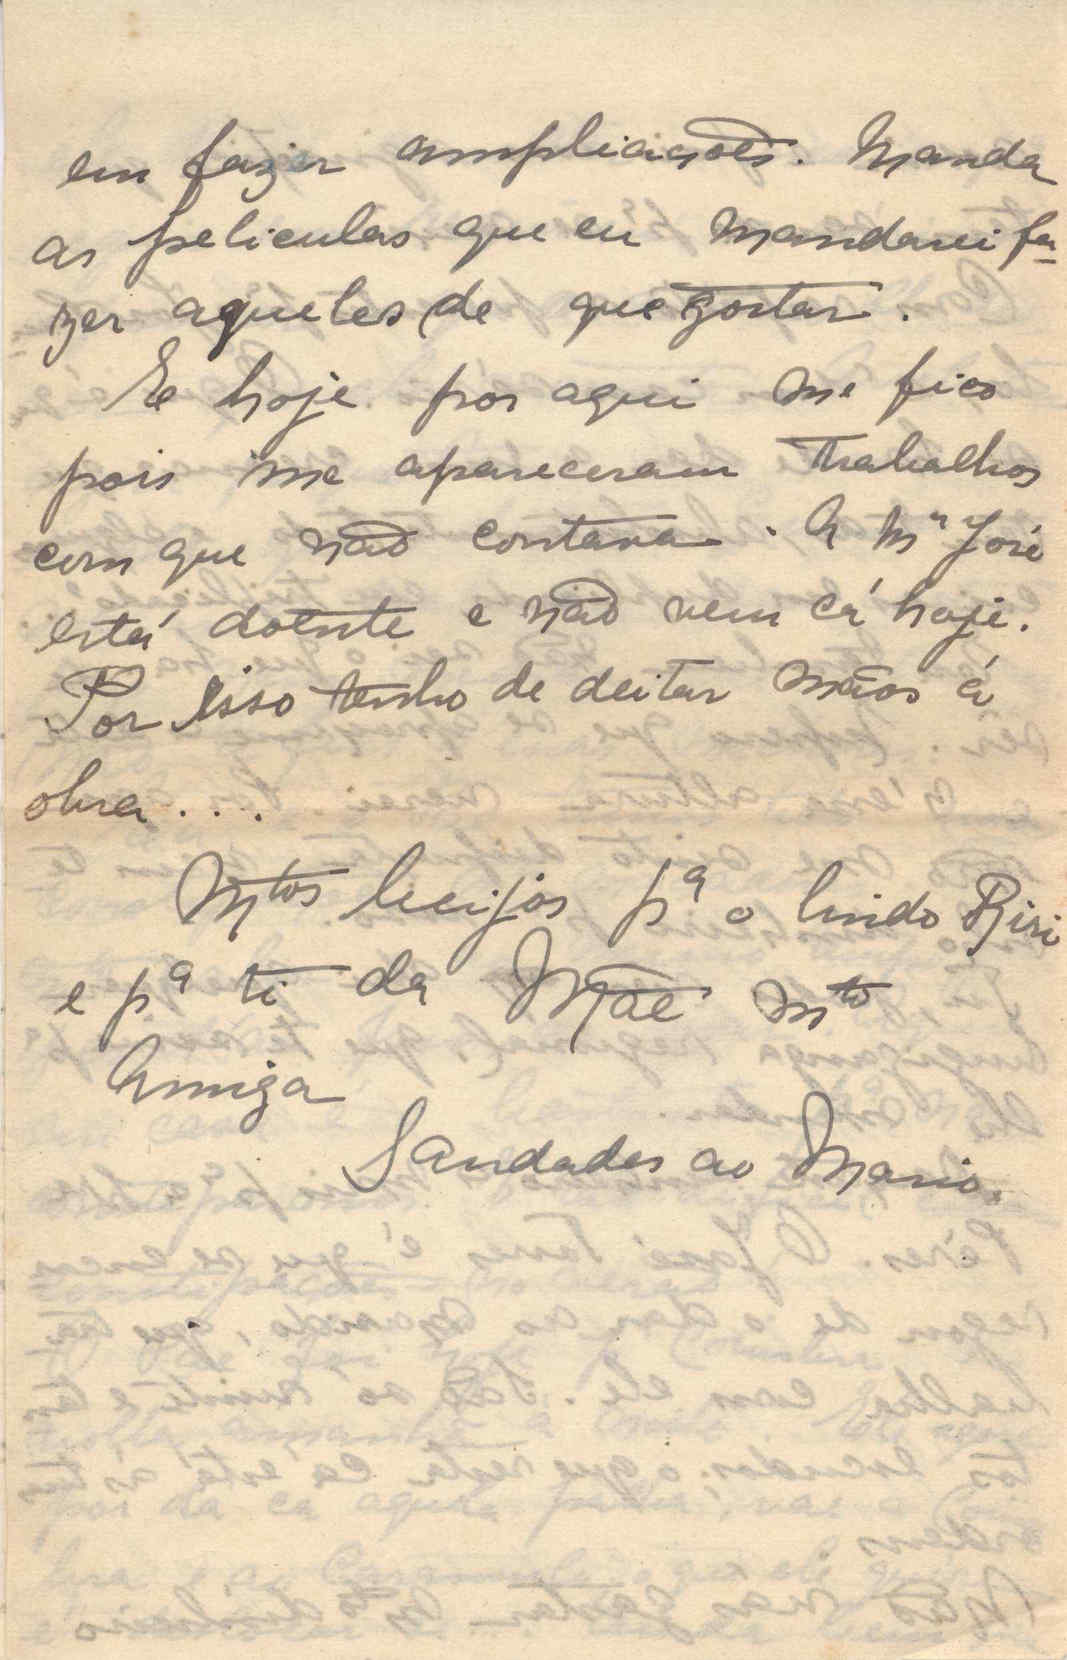 em fazer ampliações. Manda
as peliculas que eu mandarei fa-
zer aqueles de que gostar.
E hoje por aqui me fico
pois me apareceram trabalhos
com que não contava. A Mª José
está doente e não vem cá hoje.
Por isso tenho de deitar mãos á
obra....
Mtos beijos pª o lindo Riri
e pª ti da Mãe mto
Amiga
Saudades ao Mario.